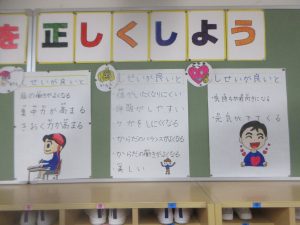 を正しくしよう
しせいが良いと
脳の働きがよくなる
集中力が高まる
きおく力が高まる
しせいが良いと
・腰がいたくなりにくい
・呼吸がしやすい
・ケガをしにくくなる
・からだのバランスがよくなる
・からだの動きがよくなる
・美しい
しせいが良いと
・気持ちが前向きになる
・元気がでてくる